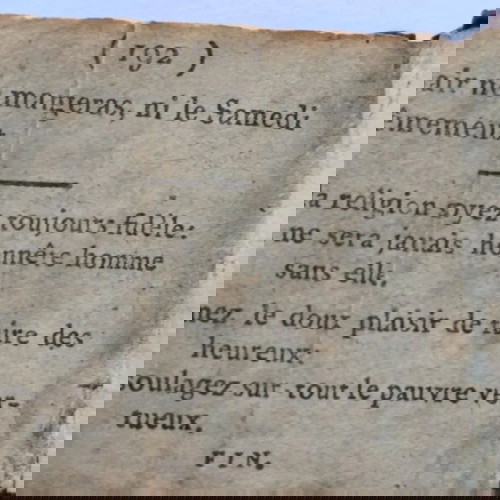 ( 192 )
air ne mangeras, ni le Samedi
urement.
a religion soyez toujours fidèle:
ne sera jamais honnête homme
sans elle.
nez le doux plaisir de faire des
heureux:
soulagez sur tout le pauvre ver-
tueux.
FIN.